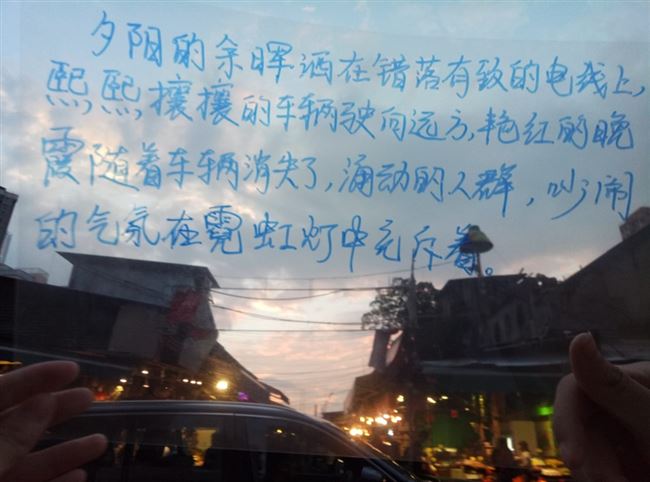 夕阳的余晖洒在错落有致的电线上，
熙熙攘攘的车辆驶向远方，艳红的晚
霞随着车辆消失了，涌动的人群，吵闹
的气氛在霓虹灯中充斥着。